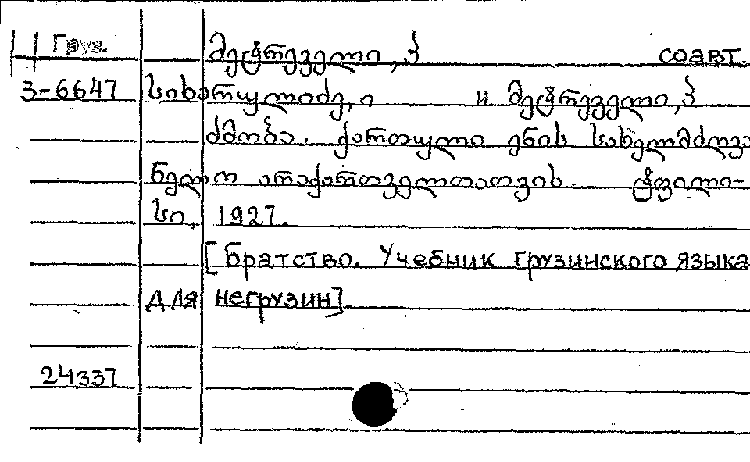 Груз. მეტრეველი, პ соавт.
3-6647 სიხარულიძე, ი и მეტრეველი, პ
ძმობა. ქართული ენის სახელმძღვა
ნელო არაქართველთათვის. ტფილი-
სი, 1927.
[Братство. Учебник грузинского языка
для негрузин].
24337